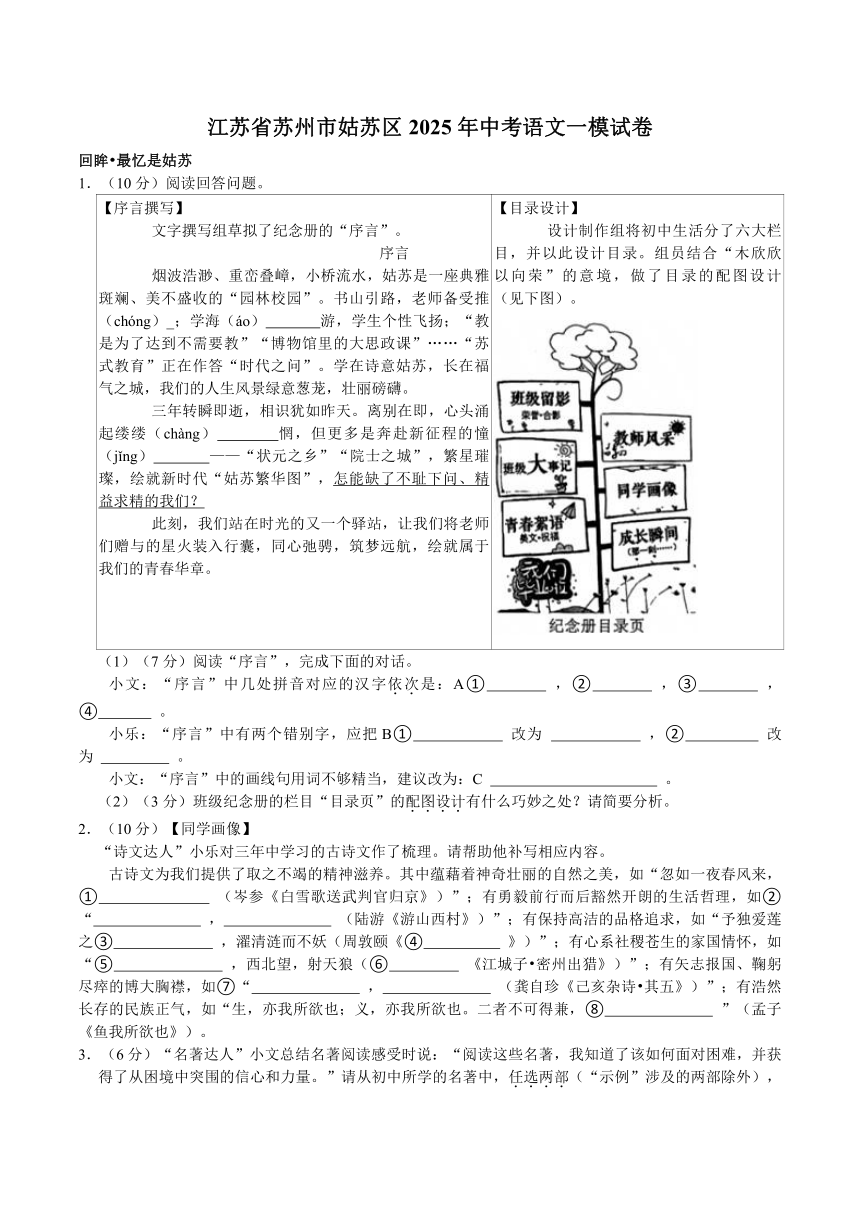 江苏省苏州市姑苏区2025年中考语文一模试卷
回眸•最忆是姑苏
1．（10分）阅读回答问题。
【序言撰写】
文字撰写组草拟了纪念册的“序言”。
序言
烟波浩渺、重峦叠嶂，小桥流水，姑苏是一座典雅
斑斓、美不盛收的“园林校园”。书山引路，老师备受推
（chóng）_；学海（áo）______游，学生个性飞扬；“教
是为了达到不需要教”“博物馆里的大思政课”……“苏
式教育”正在作答“时代之问”。学在诗意姑苏，长在福
气之城，我们的人生风景绿意葱茏，壮丽磅礴。
三年转瞬即逝，相识犹如昨天。离别在即，心头涌
起缕缕（chàng）______惘，但更多是奔赴新征程的憧
（jǐng）______——“状元之乡”“院士之城”，繁星璀
璨，绘就新时代“姑苏繁华图”，怎能缺了不耻下问、精
益求精的我们？
此刻，我们站在时光的又一个驿站，让我们将老师
们赠与的星火装入行囊，同心弛骋，筑梦远航，绘就属于
我们的青春华章。
【目录设计】
设计制作组将初中生活分了六大栏
目，并以此设计目录。组员结合“木欣欣
以向荣”的意境，做了目录的配图设计
（见下图）。
班级留影
荣誉•合影
教师风采
班级大事记
同学画像
青春絮语
美文•祝福
成长瞬间
（那一刻……）
毕业们
纪念册目录页
（1）（7分）阅读“序言”，完成下面的对话。
小文：“序言”中几处拼音对应的汉字依次是：A①______，②______，③______，
④______。
小乐：“序言”中有两个错别字，应把B①______改为______，②______改
为______。
小文：“序言”中的画线句用词不够精当，建议改为：C______。
（2）（3分）班级纪念册的栏目“目录页”的配图设计有什么巧妙之处？请简要分析。
2．（10分）【同学画像】
“诗文达人”小乐对三年中学习的古诗文作了梳理。请帮助他补写相应内容。
古诗文为我们提供了取之不竭的精神滋养。其中蕴藉着神奇壮丽的自然之美，如“忽如一夜春风来，
①______（岑参《白雪歌送武判官归京》）”；有勇毅前行而后豁然开朗的生活哲理，如②
“______，______（陆游《游山西村》）”；有保持高洁的品格追求，如“予独爱莲
之③______，濯清涟而不妖（周敦颐《④______》）”；有心系社稷苍生的家国情怀，如
“⑤______，西北望，射天狼（⑥______《江城子•密州出猎》）”；有矢志报国、鞠躬
尽瘁的博大胸襟，如⑦“______，______（龚自珍《己亥杂诗•其五》）”；有浩然
长存的民族正气，如“生，亦我所欲也；义，亦我所欲也。二者不可得兼，⑧______”（孟子
《鱼我所欲也》）。
3．（6分）“名著达人”小文总结名著阅读感受时说：“阅读这些名著，我知道了该如何面对困难，并获
得了从困境中突围的信心和力量。”请从初中所学的名著中，任选两部（“示例”涉及的两部除外），